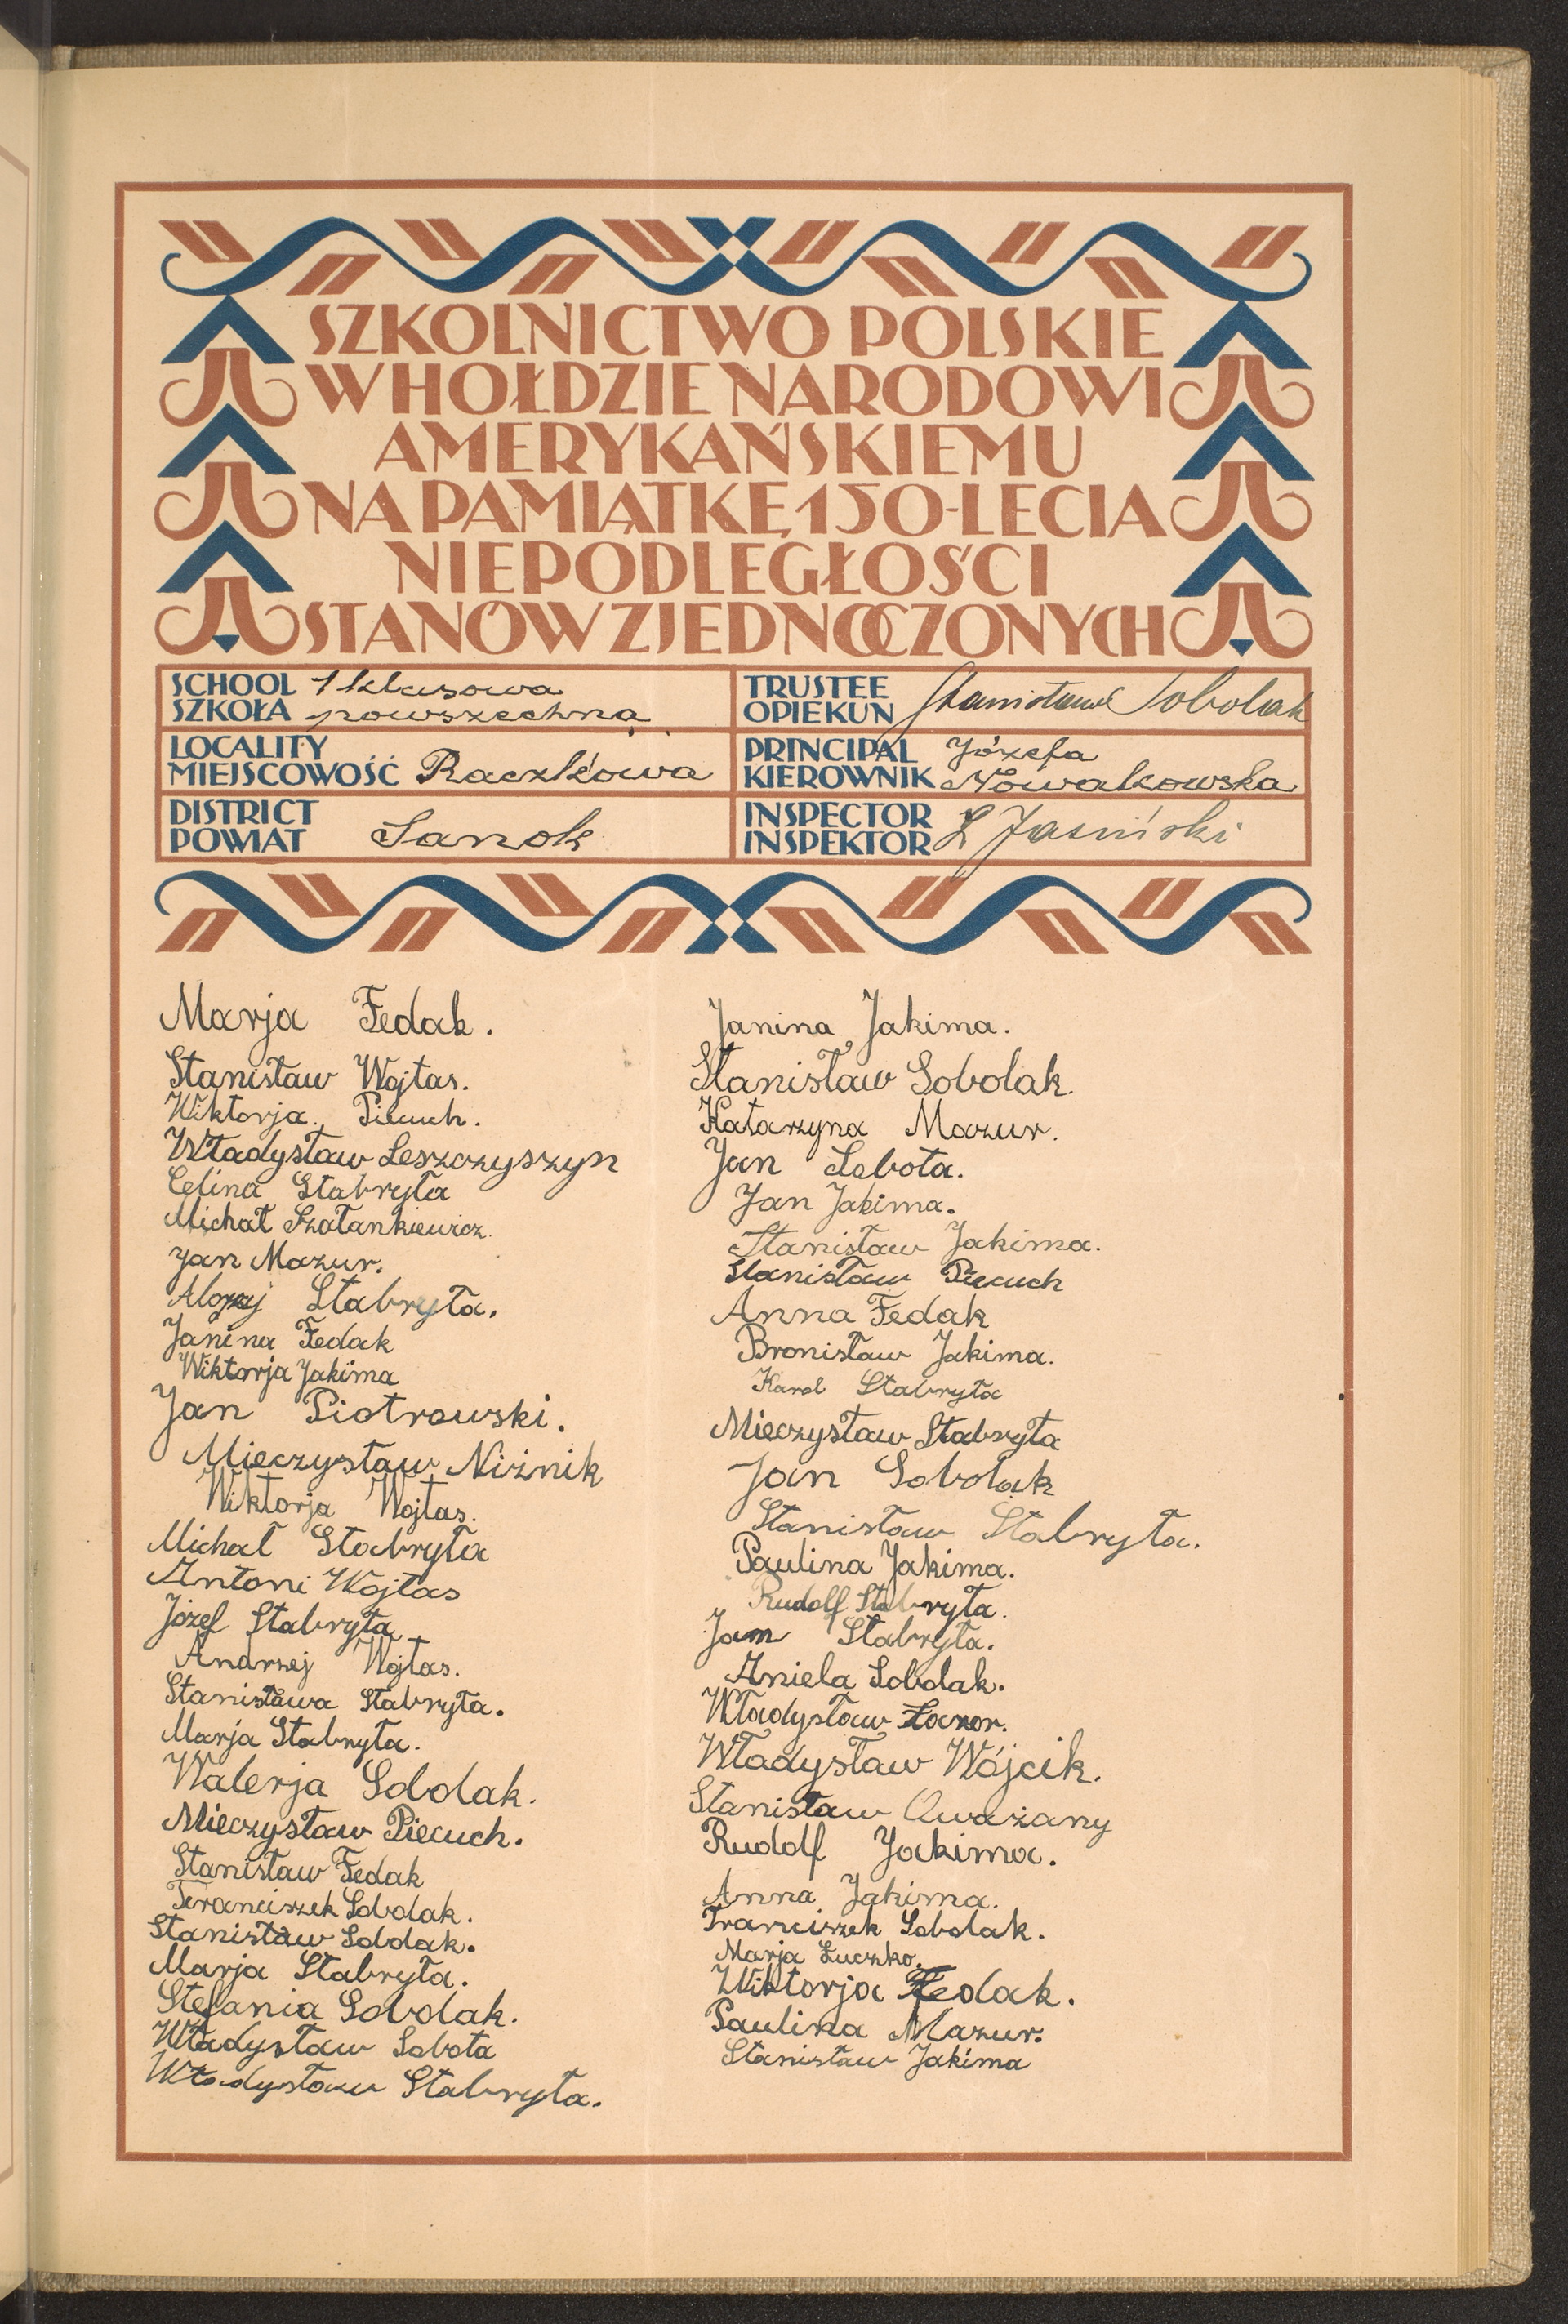 SZKOLNICTWO POLSKIE
W HOŁDZIE NARODOWI
AMERYKAŃSKIEMU
NA PAMIĄTKĘ 150-LECIA
NIEPODLEGŁOŚCI
STANÓW ZJEDNOCZONYCH
SCHOOL SZKOŁA 1 klasowa
powszechna
LOCALITY
MIEJSCOWOŚĆ Raczkowa
DISTRICT
POWIAT Sanok
TRUSTEE
OPIEKUN Stanisław Sobolak
PRINCIPAL Józefa
KIEROWNIK Nowakowska
INSPECTOR
INSPEKTOR L Jasiński
Marja Fedak.
Stanisław Wojtas.
Wiktorja Piecuch.
Władysław Leszczyszyn
Celina Stabryła
Michał Szałankiewicz.
Jan Mazur.
Alojzy Stabryła.
Janina Fedak
Wiktorja Jakima
Jan Piotrowski.
Mieczysław Niżnik
Wiktorja Wojtas.
Michał Stabryła
Antoni Wojtas
Józef Stabryła
Andrzej Wojtas.
Stanisława Stabryła.
Marja Stabryła.
Walerja Sobolak.
Mieczysław Piecuch.
Stanisław Fedak
Franciszek Sobolak.
Stanisław Sobolak.
Marja Stabryła.
Stefania Sobolak.
Władysław Sobota
Władysław Stabryła.
Janina Jakima.
Stanisław Sobolak.
Katarzyna Mazur.
Jan Sobota.
Jan Jakima.
Stanisław Jakima.
Stanisław Piecuch
Anna Fedak
Bronisław Jakima.
Karol Stabryła
Mieczysław Stabryła
Jan Sobolak
Stanisław Stabryła.
Paulina Jakima.
Rudolf Stabryła.
Jan Stabryła.
Aniela Sobolak.
Władysław
Władysław Wójcik.
Stanisław Oważany
Rudolf Jakima.
Anna Jakima.
Franciszek Sobolak.
Marja Łuczko.
Wiktorja Fedak.
Paulina Mazur.
Stanisław Jakima